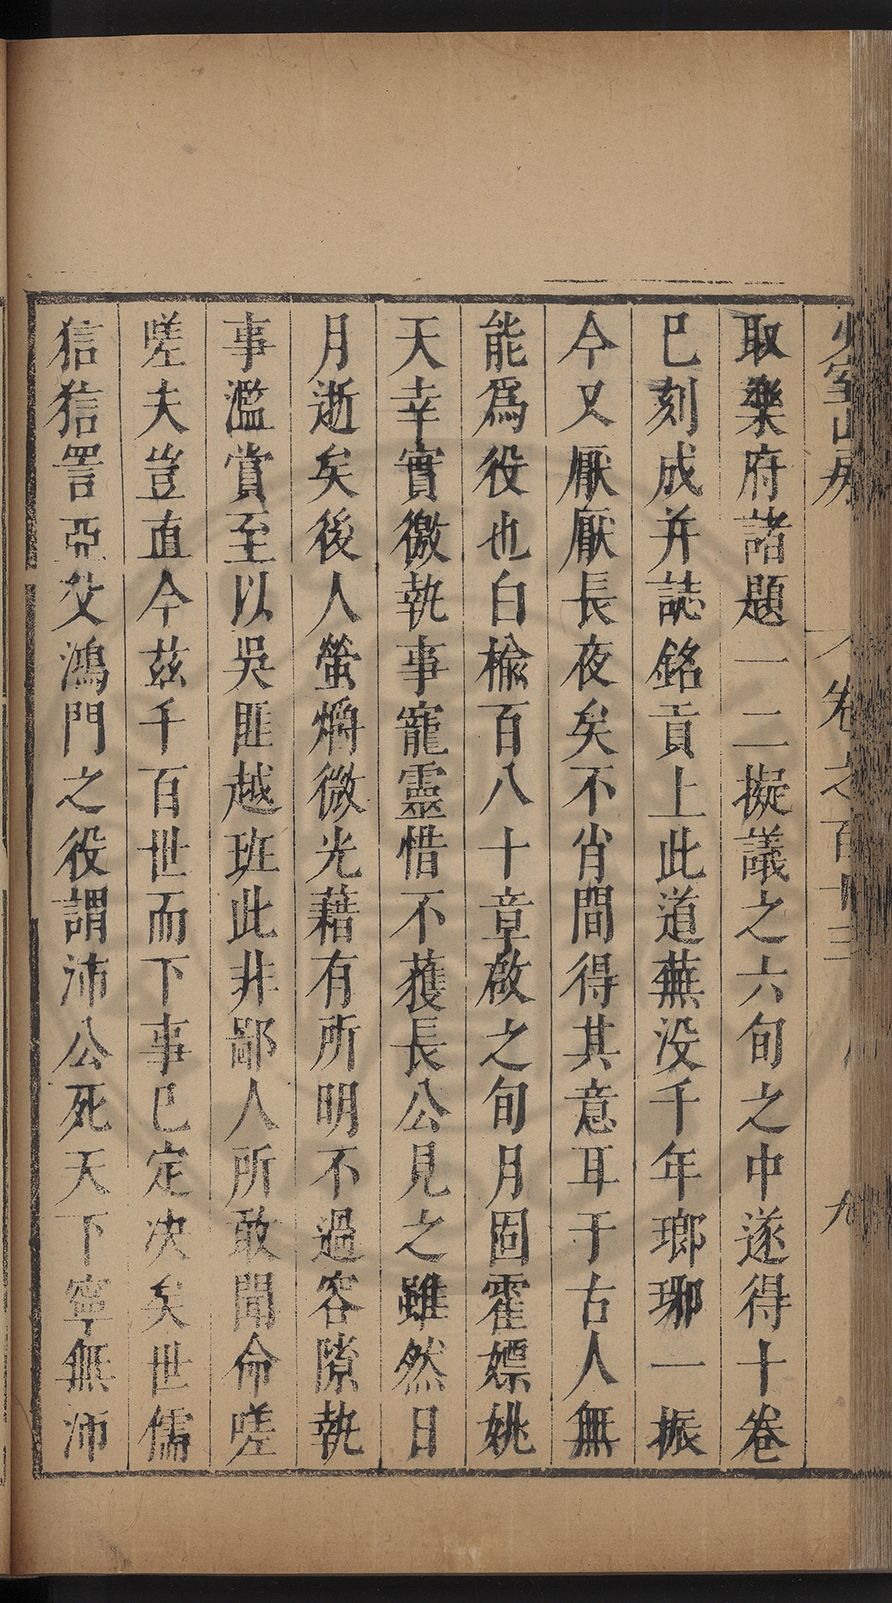 少室山房 卷之百十三 九
取樂府諸題一二擬議之六旬之中遂得十卷
已刻成并誌銘貢上此道蕪没千年瑯琊一振
今又厭厭長夜矣不肖間得其意耳于古人無
能爲役也白榆百八十章啟之旬月固霍嫖姚
天幸實徼執事寵靈惜不蒦長公見之雖然日
月逝矣後人螢爝微光藉有所明不過容隙執
事濫賞至以吳匪越班此非鄙人所敢聞命嗟
嗟夫豈直今茲千百世而下事已定决矣世儒
狺狺詈亞父鴻門之役謂沛公死天下寧無沛